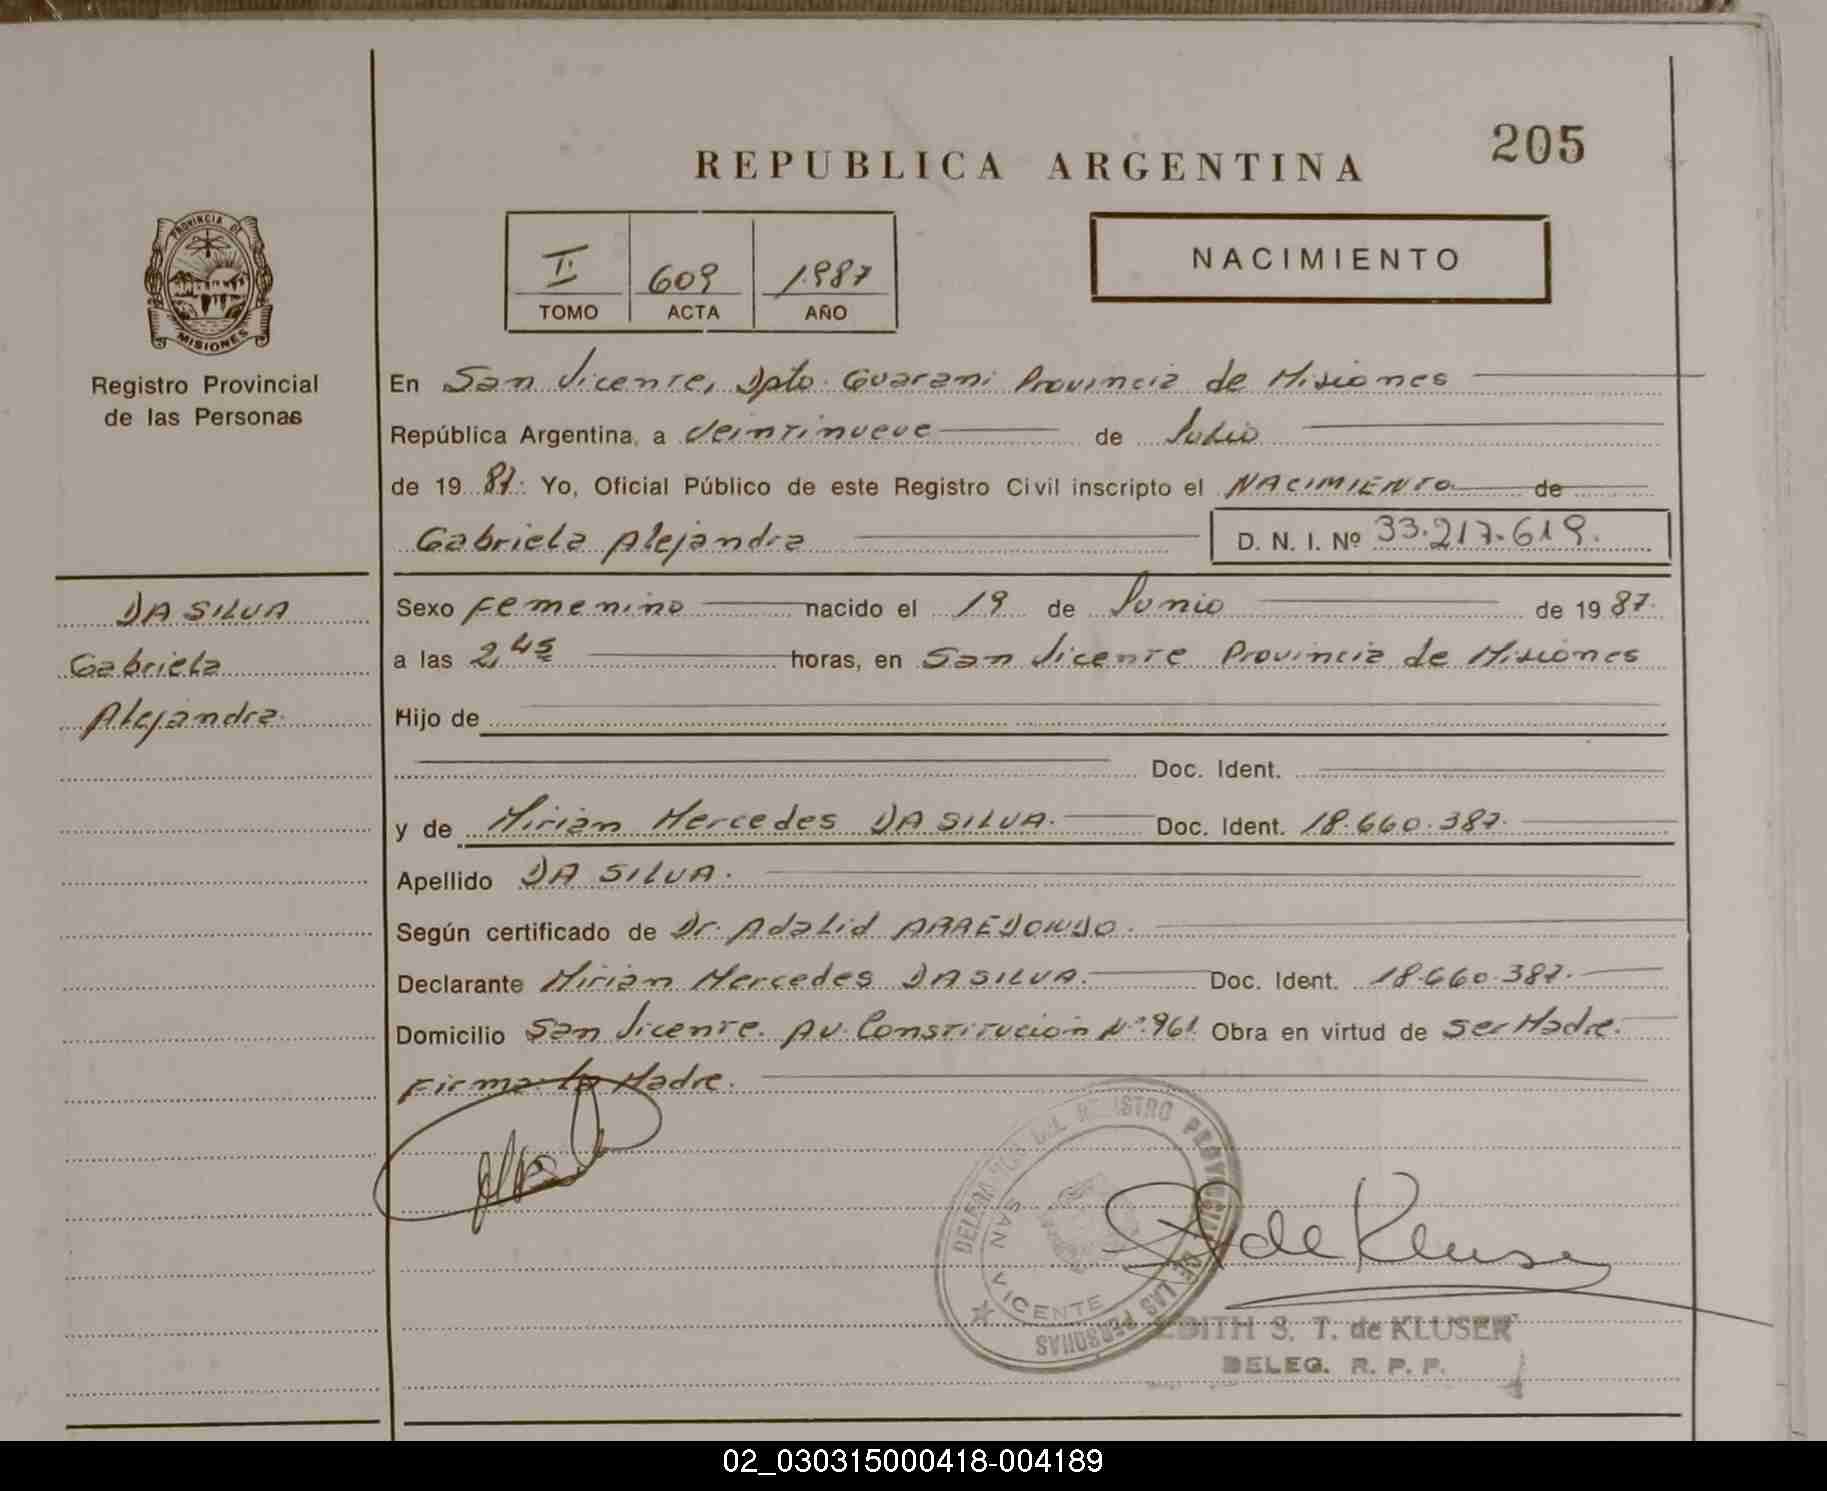 205
REPUBLICA ARGENTINA
II 609 1987
TOMO ACTA AÑO
NACIMIENTO
PROVINCIA DE MISIONES
Registro Provincial
de las Personas
En San Vicente, Dpto. Guarani Provincia de Misiones
República Argentina, a veintinueve de Julio
de 1987. Yo, Oficial Público de este Registro Civil inscripto el NACIMIENTO de
Gabriela Alejandra D. N. I. Nº 33.217.619.
DA SILVA
Gabriela
Alejandra.
Sexo Femenino nacido el 19 de Junio de 1987.
a las 2,45 horas, en San Vicente Provincia de Misiones
Hijo de
Doc. Ident.
y de Mirian Mercedes DA SILVA. Doc. Ident. 18.660.387.
Apellido DA SILVA.
Según certificado de Dr. Adalid ARREDONDO.
Declarante Mirian Mercedes DA SILVA. Doc. Ident. 18.660.387.
Domicilio San Vicente. Av. Constitución Nº 961. Obra en virtud de ser Madre.
Firma la Madre.
DELEGACION DEL REGISTRO PROVINCIAL DE LAS PERSONAS
SAN VICENTE
de Kluser
EDITH S. T. de KLUSER
DELEG. R. P. P.
02_030315000418-004189